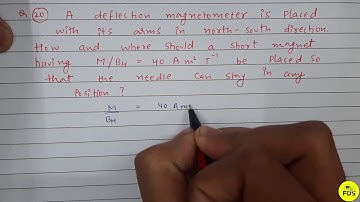 Q. 20 A deflection magnetometer is placed
with its arms in north-south direction.
How and where should a short magnet
having M/BH = 40 A m² T⁻¹ be placed so
that the needle can stay in any
position ?
M/BH = 40 A m
FDS